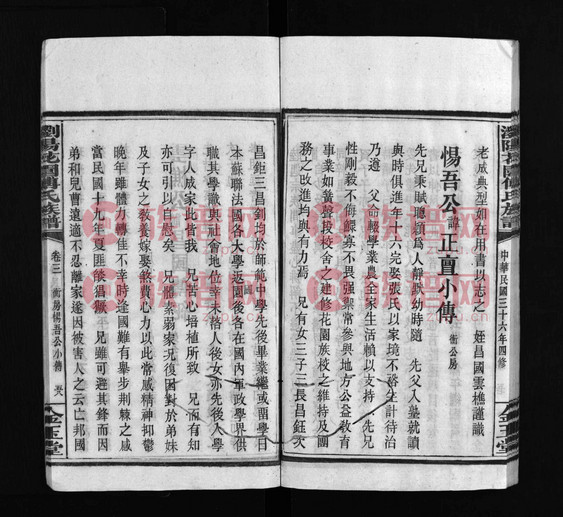 瀏陽花園傅氏族譜
中華民國三十六年四修
老成典型如在用書以志之　姪昌國雲樵謹識
惕吾公諱正亶小傳　衡公房
先兄秉賦聰穎爲人靜默幼時隨　先父入塾就讀
與時俱進年十六完娶張氏以家境不裕生計待治
乃遵　父命輟學業農全家生活賴以支持　先兄
性剛毅不侮鰥寡不畏强禦常參與地方公益敎育
事業如黌聲段校舍之建修花園族校之維持及團
務之改進均與有力焉　兄有女三子三長昌鈺次
昌鉅三昌釗均於師範中學先後畢業繼或留學日
本蘇聯法國各大學返國後各在國內軍政學界供
職其學識與社會地位幸未落人後女亦先後入學
字人成家此皆我　兄苦心培植所致　兄而有知
亦可引以自慰矣　兄體素弱家况復困對於弟妹
及子女之敎養嫁娶煞費心力以此常感精神抑鬱
晚年雖體力轉佳不幸時逢國難有舉步荆棘之感
當民國十九年夏匪燄猖獗　兄雖可避其鋒而因
弟和兄曹遠適不忍離家遂因被害人之云亡邦國
瀏陽花園傅氏族譜
卷三
衡房惕吾公小傳
金玉堂